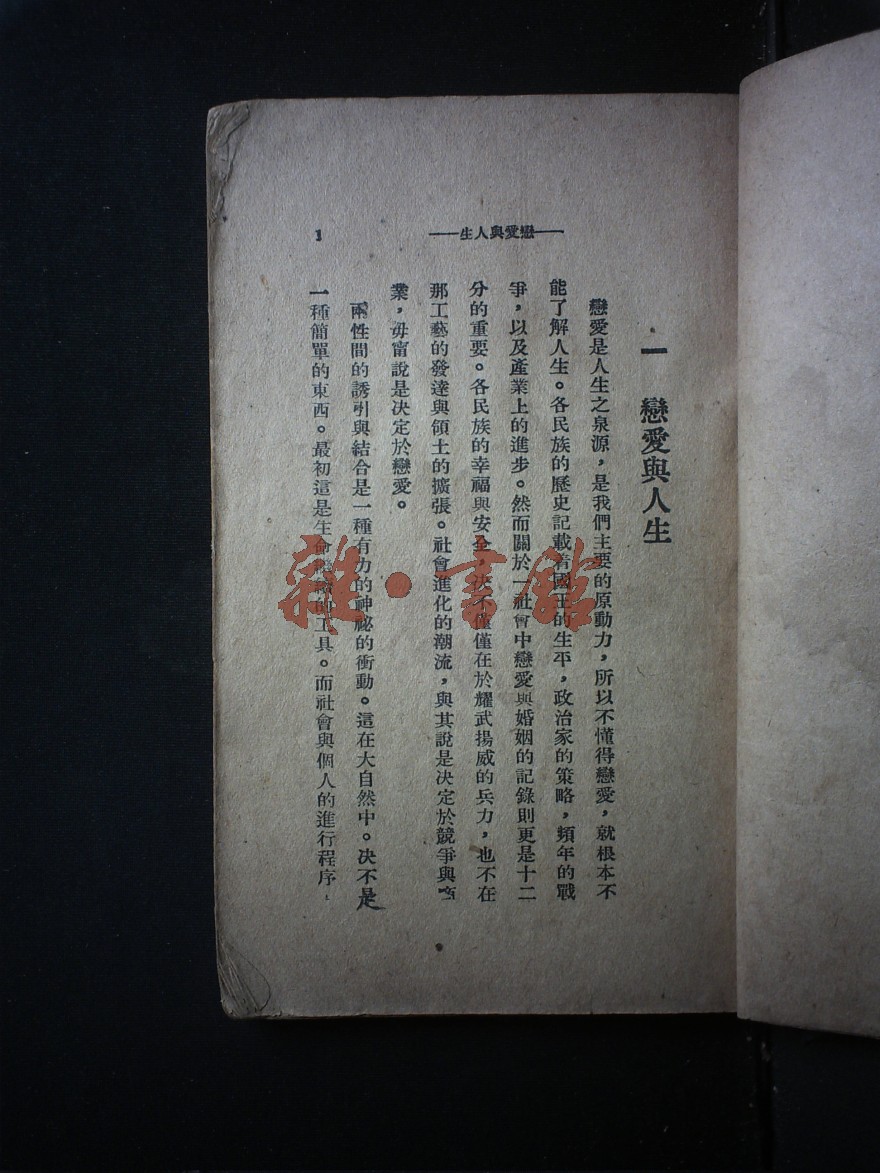 ——戀愛與人生——
1
一　戀愛與人生
戀愛是人生之泉源，是我們主要的原動力，所以不懂得戀愛，就根本不
能了解人生。各民族的歷史記載着國王的生平，政治家的策略，頻年的戰
爭，以及產業上的進步。然而關於一社會中戀愛與婚姻的記錄則更是十二
分的重要。各民族的幸福與安全，決不僅僅在於耀武揚威的兵力，也不在
那工藝的發達與領土的擴張。社會進化的潮流，與其說是決定於競爭與商
業，毋甯說是決定於戀愛。
兩性間的誘引與結合是一種有力的神祕的衝動。這在大自然中。決不是
一種簡單的東西。最初這是生命的工具。而社會與個人的進行程序，
雜·書館